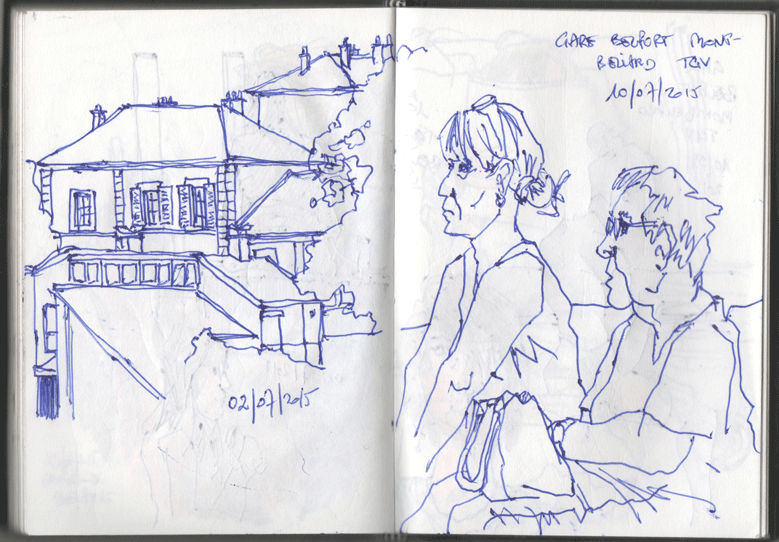 02/07/2015
GARE BELFORT MONT-
BELIARD TGV
10/07/2015